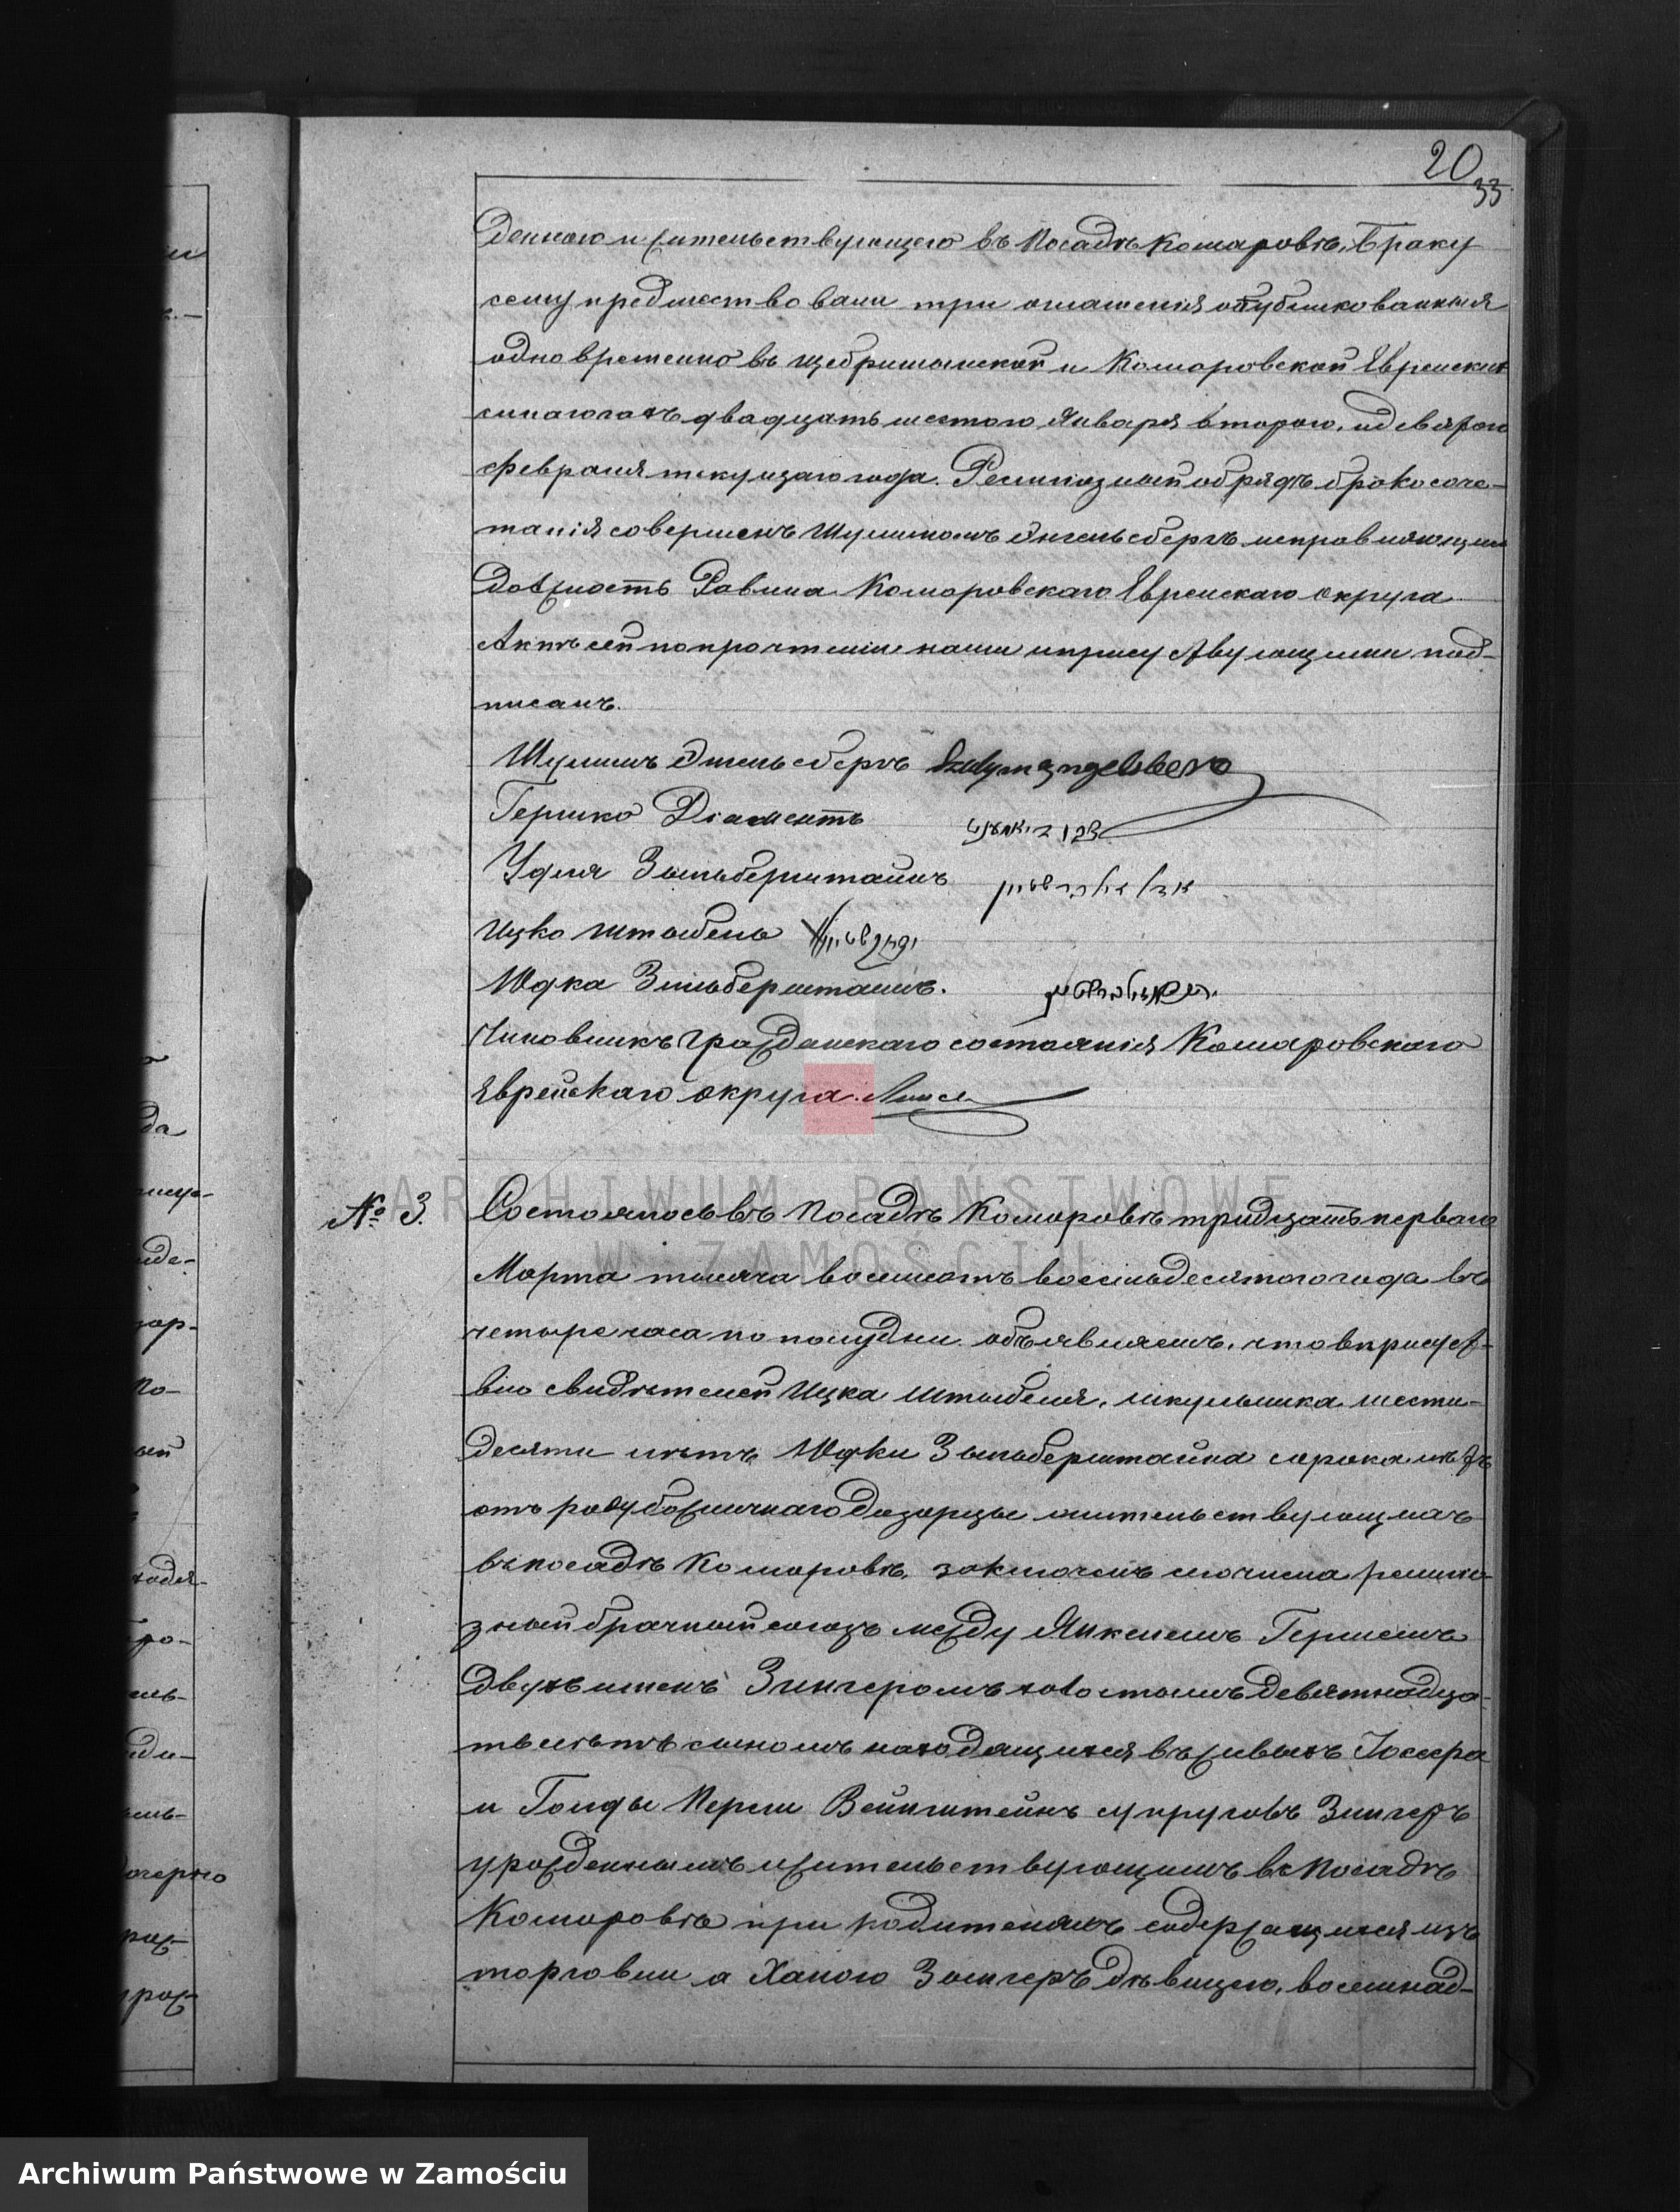 20
33
деннаго и жительствующего въ Посадѣ Комаровѣ, Браку
сему предшествовали три оглашенія опубликованныя
одновременно въ Щебришинской и Комаровской Еврейских
синагогахъ двадцать шестого Января второго, и девятого
Февраля текущаго года. Религіозный обрядъ бракосоче-
танія совершенъ Шулимомъ Энгельсбергъ исправляющим
должность Равина Комаровскаго Еврейскаго округа
Актъ сей по прочтеніи нами и присутствующими под-
писанъ.
Шулимъ Энгельсбергъ Szulym Engelsberg
Гершко Діаментъ
Удля Зыльберштайнъ
Ицко Штыбель
Юдка Зильберштайнъ.
Чиновникъ Гражданскаго состоянія Комаровскаго
Еврейскаго округа.
№ 3. Состоялось въ Посадѣ Комаровѣ тридцать перваго
Марта тысяча восемьсотъ восемьдесятого года въ
четыре часа по полудни. объявляемъ, что в присутст-
віи свидѣтелей Ицка Штыбеля, школьника шести-
десяти лѣтъ Юдки Зыльберштайна сорока лѣтъ
отъ роду божничнаго дозорцы жительствующихъ
въ посадѣ Комаровѣ, заключенъ сего числа религіо-
зный брачный союзъ между Янкелемъ Гершемъ
двухъ именъ Зингеромъ холостымъ девятнадца-
ть лѣтъ сыномъ находящихся въ живыхъ Іосефа
и Голды Перли Вейнштейнъ супруговъ Зингеръ
урожденнымъ и жительствующимъ в Посадѣ
Комаровѣ при родителяхъ содержащихся изъ
торговли а Ханою Зингеръ дѣвицею, восемнад-
ARCHIWUM PAŃSTWOWE
W ZAMOŚCIU
Archiwum Państwowe w Zamościu